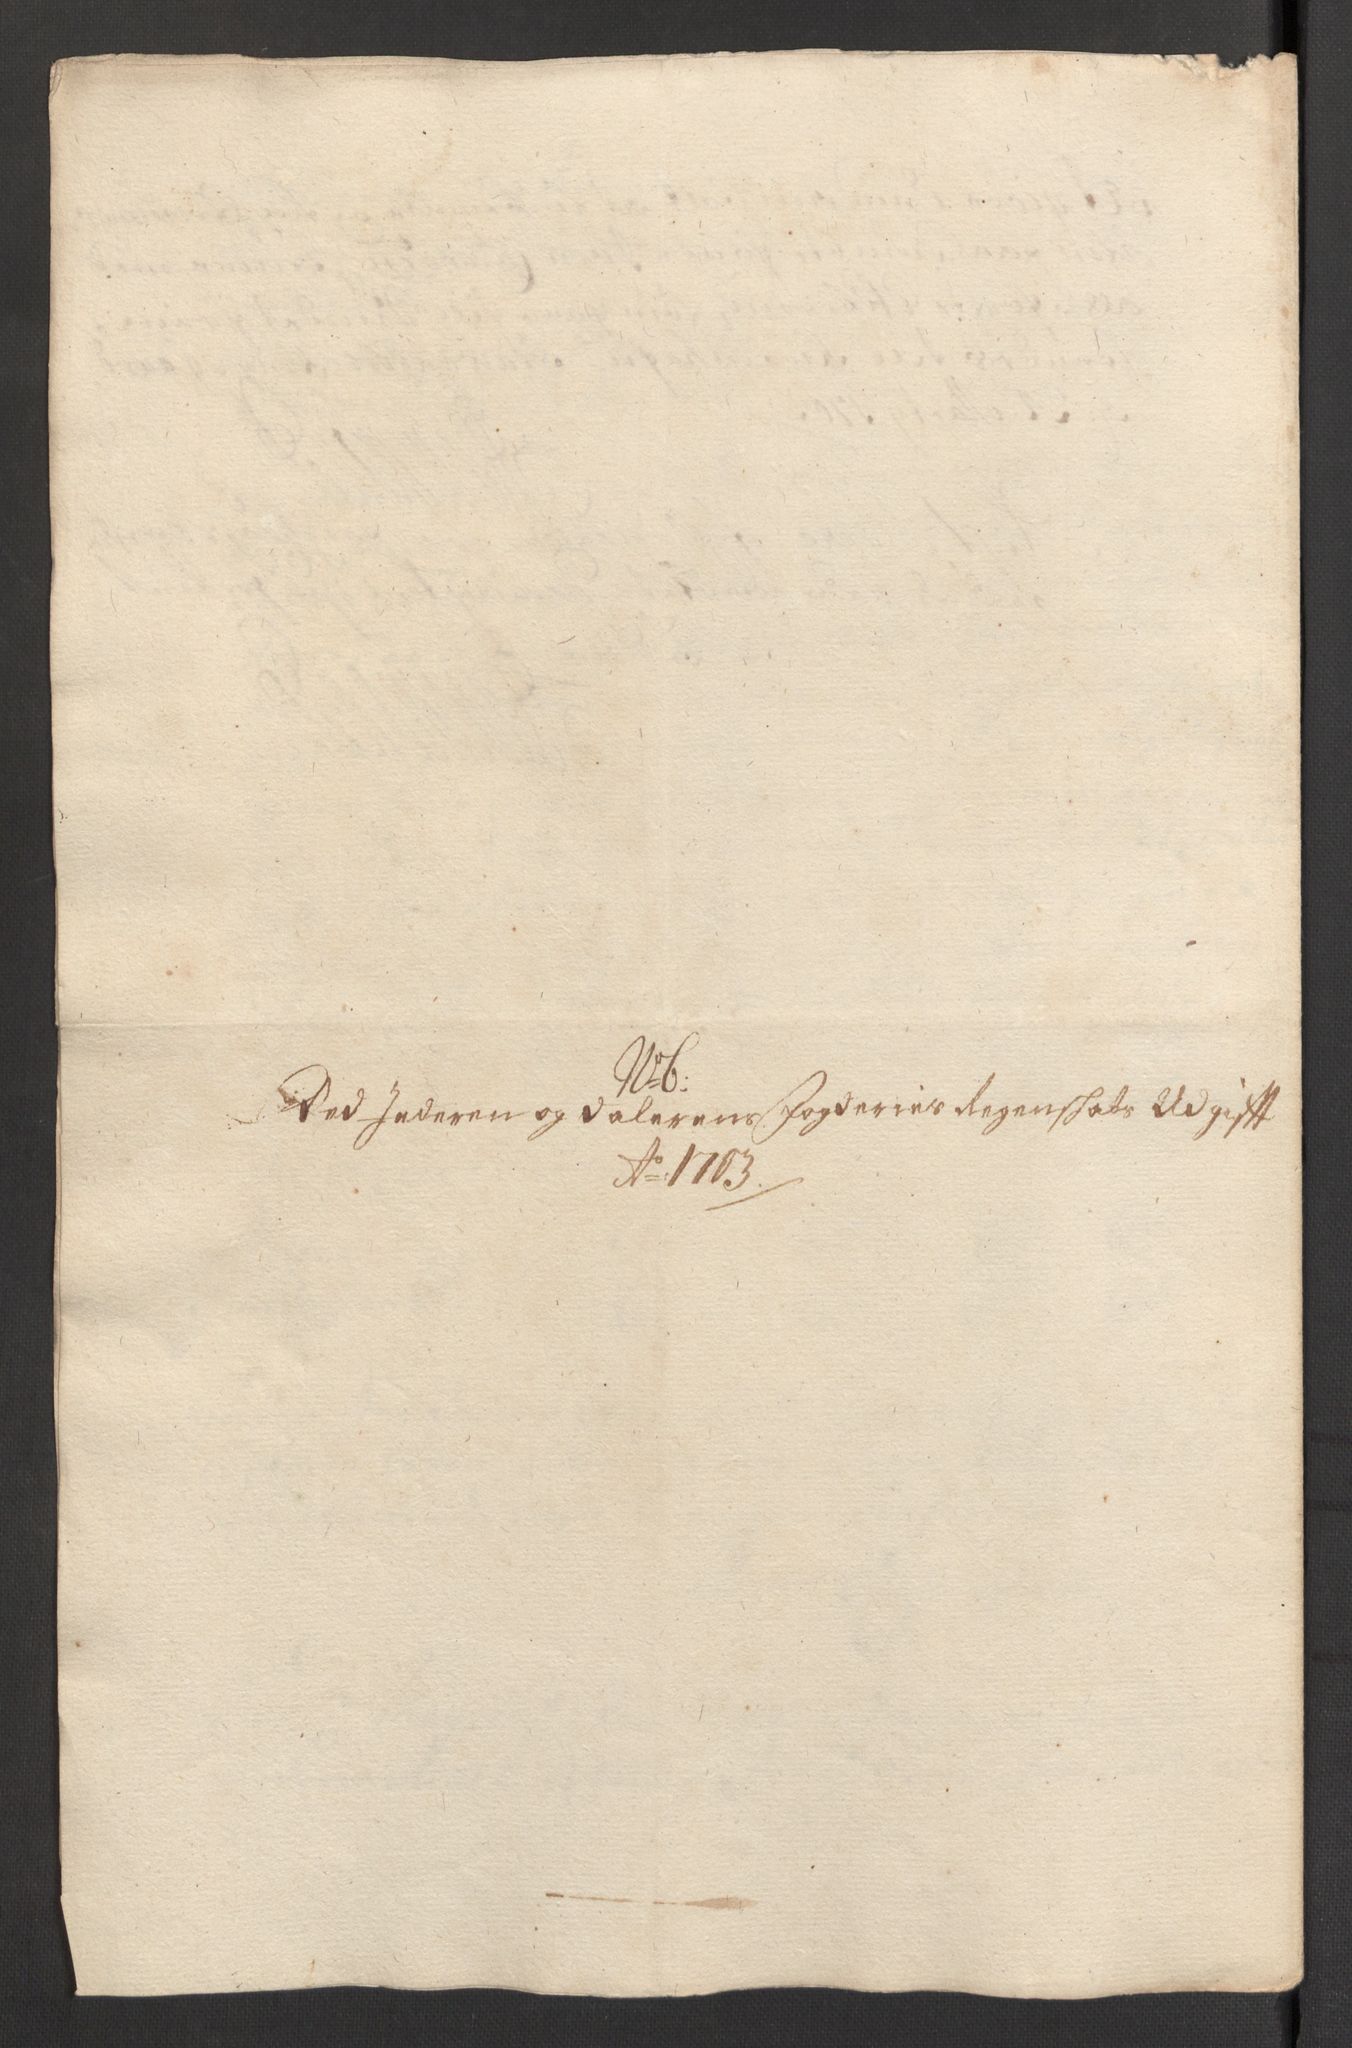 No 6:
Ved Jederen og Dalerens Fogderies Regenskabs Udgifft
Ao 1703.